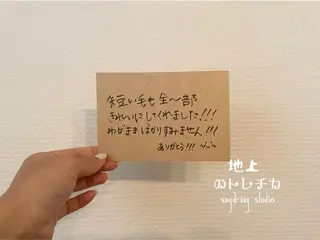 短い毛も全〜部
きれいにしてくれました!!!
わがままばかりすみません!!!
ありがとう!!!
地上
のトレチカ